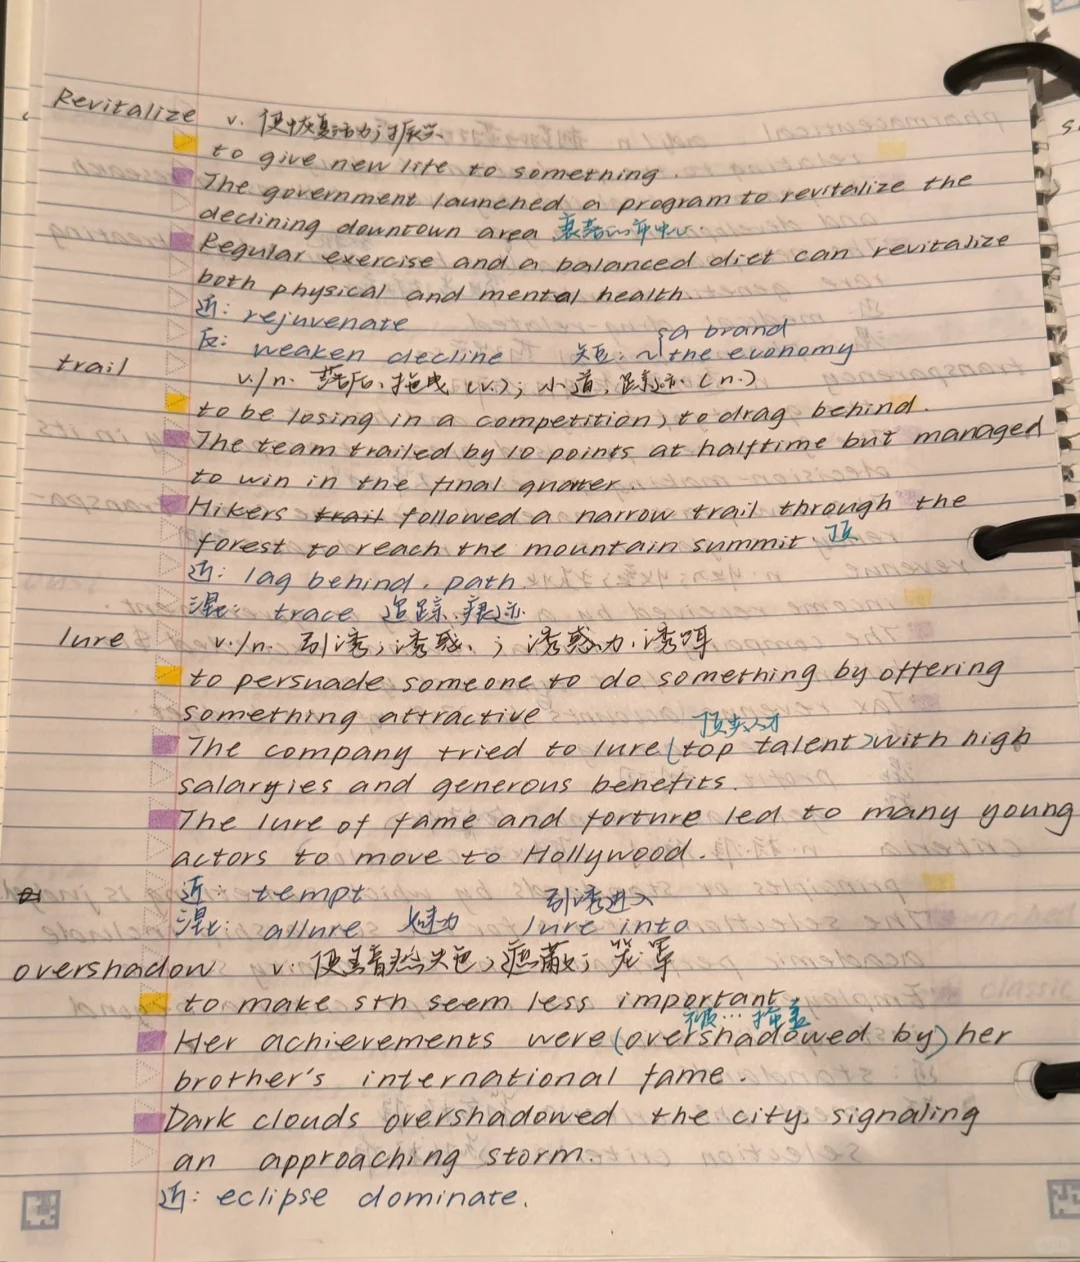 Revitalize v. 使恢复活力；振兴
to give new life to something.
The government launched a program to revitalize the
declining downtown area 衰落的市中心
Regular exercise and a balanced diet can revitalize
both physical and mental health.
近: rejuvenate
反: weaken decline 短: ~ { a brand
the economy
trail v./n. 落后、拖曳 (v.)；小道, 踪迹 (n.)
to be losing in a competition; to drag behind.
The team trailed by 10 points at halftime but managed
to win in the final quarter.
Hikers trail followed a narrow trail through the
forest to reach the mountain summit. 顶
近: lag behind. path.
混: trace 追踪、痕迹
lure v./n. 引诱；诱惑、；诱惑力、诱饵
to persuade someone to do something by offering
something attractive
顶尖人才
The company tried to lure (top talent) with high
salaryies and generous benefits.
The lure of fame and forture led to many young
actors to move to Hollywood.
近: tempt 引诱进入
混: allure 魅力 lure into
overshadow v. 使黯然失色；遮蔽；笼罩
to make sth seem less important
被…掩盖
Her achievements were (overshadowed by) her
brother's international fame.
Dark clouds overshadowed the city, signaling
an approaching storm.
近: eclipse dominate.